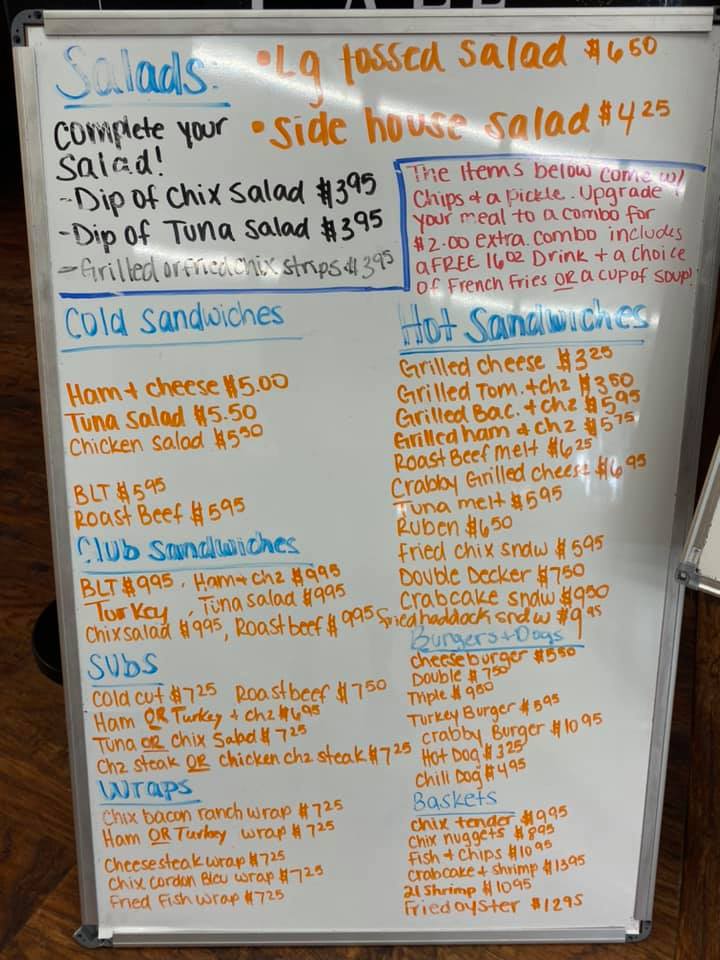 Salads:
• Lg tossed salad $6 50
• side house salad $4 25
Complete your
Salad!
- Dip of Chix Salad $3 95
- Dip of Tuna Salad $3 95
- Grilled or fried chix strips $3 95
The Items below come w/
Chips & a pickle. Upgrade
your meal to a combo for
$2.00 extra. combo includes
a FREE 16oz Drink + a choice
of French Fries OR a cup of soup!
Cold Sandwiches
Ham + cheese $5.00
Tuna salad $5.50
Chicken salad $5 50
BLT $5 95
Roast Beef $5 95
Club Sandwiches
BLT $9 95, Ham + chz $9 95
Turkey, Tuna salad $9 95
Chix salad $9 95, Roast beef $9 95
Subs
Cold cut $7 25 Roast beef $7 50
Ham OR Turkey + chz $6 95
Tuna OR chix Salad $7 25
Chz steak OR chicken chz steak $7 25
Wraps
Chix bacon ranch wrap $7 25
Ham OR Turkey wrap $7 25
Cheesesteak wrap $7 25
Chix Cordon Bleu wrap $7 25
Fried Fish wrap $7 25
Hot Sandwiches
Grilled cheese $3 25
Grilled Tom. + chz $3 50
Grilled Bac. + chz $5 95
Grilled ham & chz $5 75
Roast Beef melt $6 25
Crabby Grilled cheese $6 95
Tuna melt $5 95
Ruben $6 50
Fried chix sndw $5 95
Double Decker $7 50
Crabcake sndw $9 50
Fried haddock sndw $9 95
Burgers + Dogs
cheeseburger $5 50
Double $7 50
Triple $9 50
Turkey Burger $5 95
Crabby Burger $10 95
Hot Dog $3 25
Chili Dog $4 95
Baskets
chix tender $9 95
Chix nuggets $8 95
Fish + Chips $10 95
Crabcake + shrimp $13 95
21 Shrimp $10 95
Fried oyster $12 95